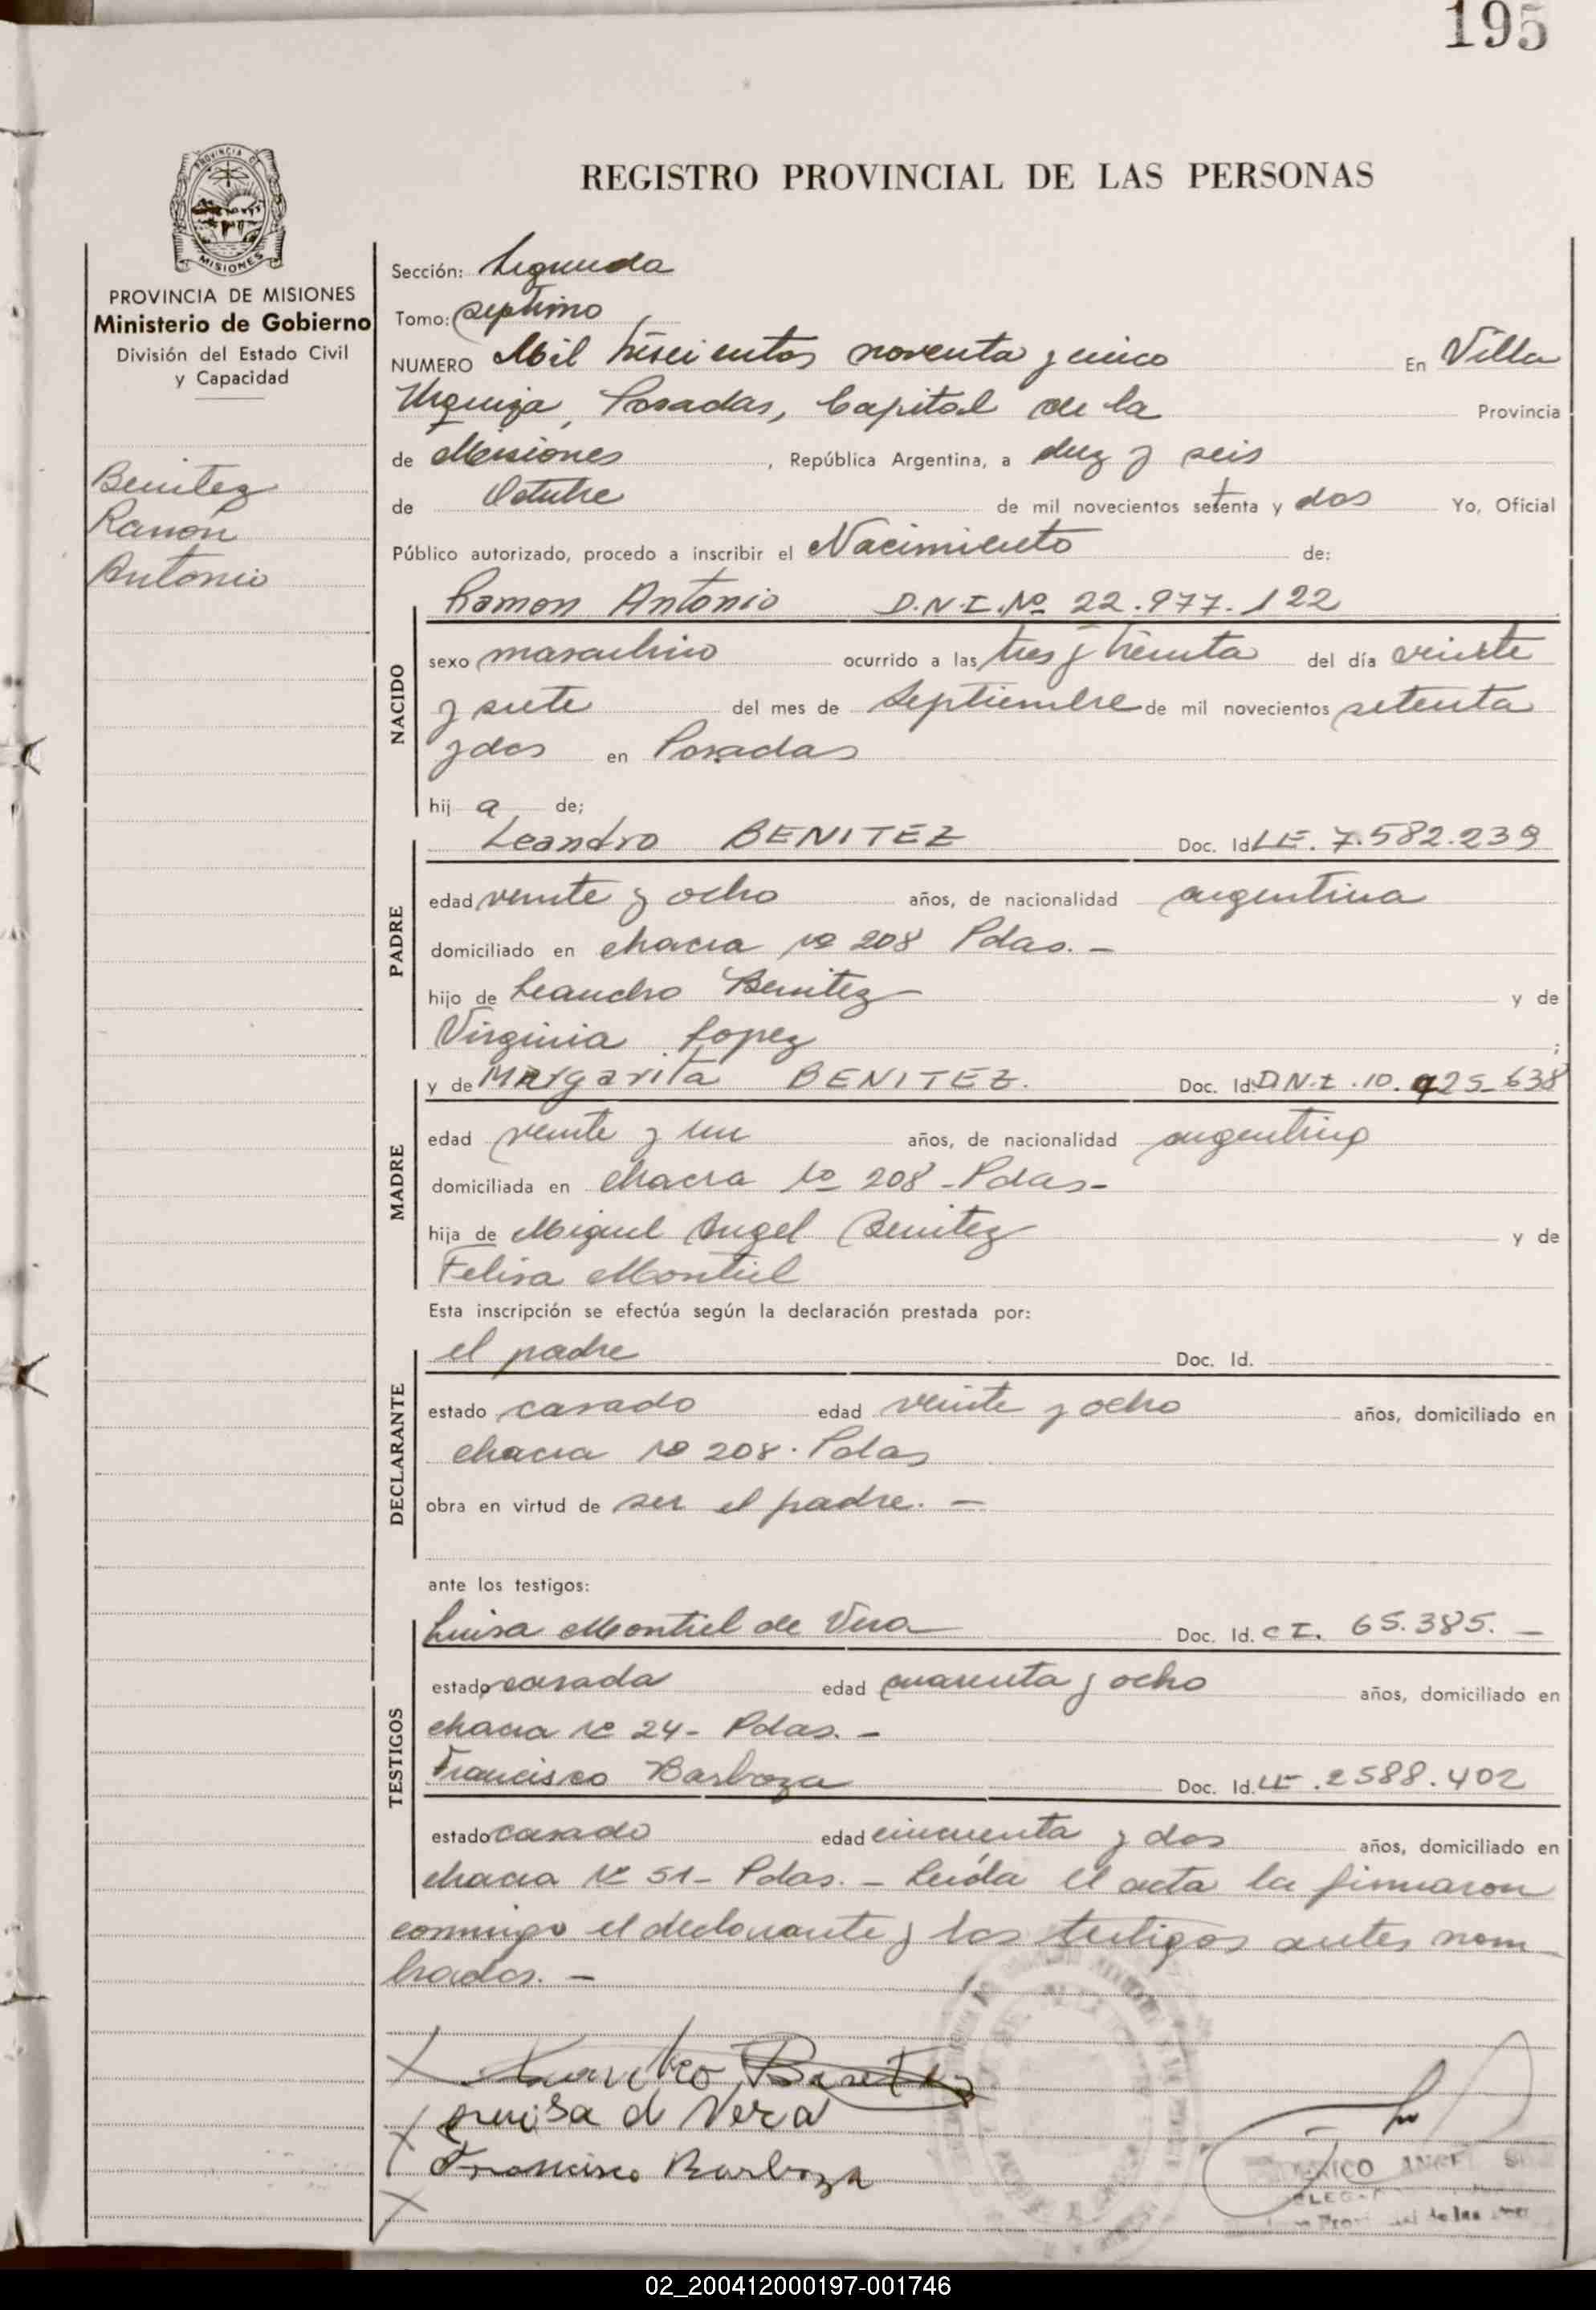 195
REGISTRO PROVINCIAL DE LAS PERSONAS
PROVINCIA DE
MISIONES
PROVINCIA DE MISIONES
Ministerio de Gobierno
División del Estado Civil
y Capacidad
Benitez
Ramón
Antonio
Sección: Segunda
Tomo: septimo
NUMERO Mil trescientos noventa y cinco En Villa
Urquiza, Posadas, Capital de la Provincia
de Misiones, República Argentina, a diez y seis
de Octubre de mil novecientos setenta y dos Yo, Oficial
Público autorizado, procedo a inscribir el Nacimiento de:
Ramon Antonio D.N.I. Nº 22.977.122
NACIDO
sexo masculino ocurrido a las tres y treinta del día veinte
y siete del mes de Septiembre de mil novecientos setenta
y dos en Posadas
hij a de;
Leandro BENITEZ Doc. Id. LE. 7.582.239
PADRE
edad veinte y ocho años, de nacionalidad argentina
domiciliado en chacra Nº 208 Pdas. -
hijo de Leandro Benitez y de
Virginia Lopez ;
y de Margarita BENITEZ. Doc. Id. D.N.I. 10.925-638
MADRE
edad veinte y un años, de nacionalidad argentina
domiciliada en chacra Nº 208 - Pdas -
hija de Miguel Angel Benitez y de
Felisa Montiel
Esta inscripción se efectúa según la declaración prestada por:
el padre Doc. Id.
DECLARANTE
estado casado edad veinte y ocho años, domiciliado en
chacra Nº 208. Pdas
obra en virtud de ser el padre. -
ante los testigos:
Luisa Montiel de Vera Doc. Id. C I. 65.385. -
TESTIGOS
estado casada edad cuarenta y ocho años, domiciliado en
chacra Nº 24 - Pdas. -
Francisco Barboza Doc. Id. LE. 2588.402
estado casado edad cincuenta y dos años, domiciliado en
chacra Nº 51 - Pdas. - Leída el acta la firmaron
conmigo el declarante y los testigos antes nom
brados. -
Luisa d Vera
Francisco Barboza
02_200412000197-001746